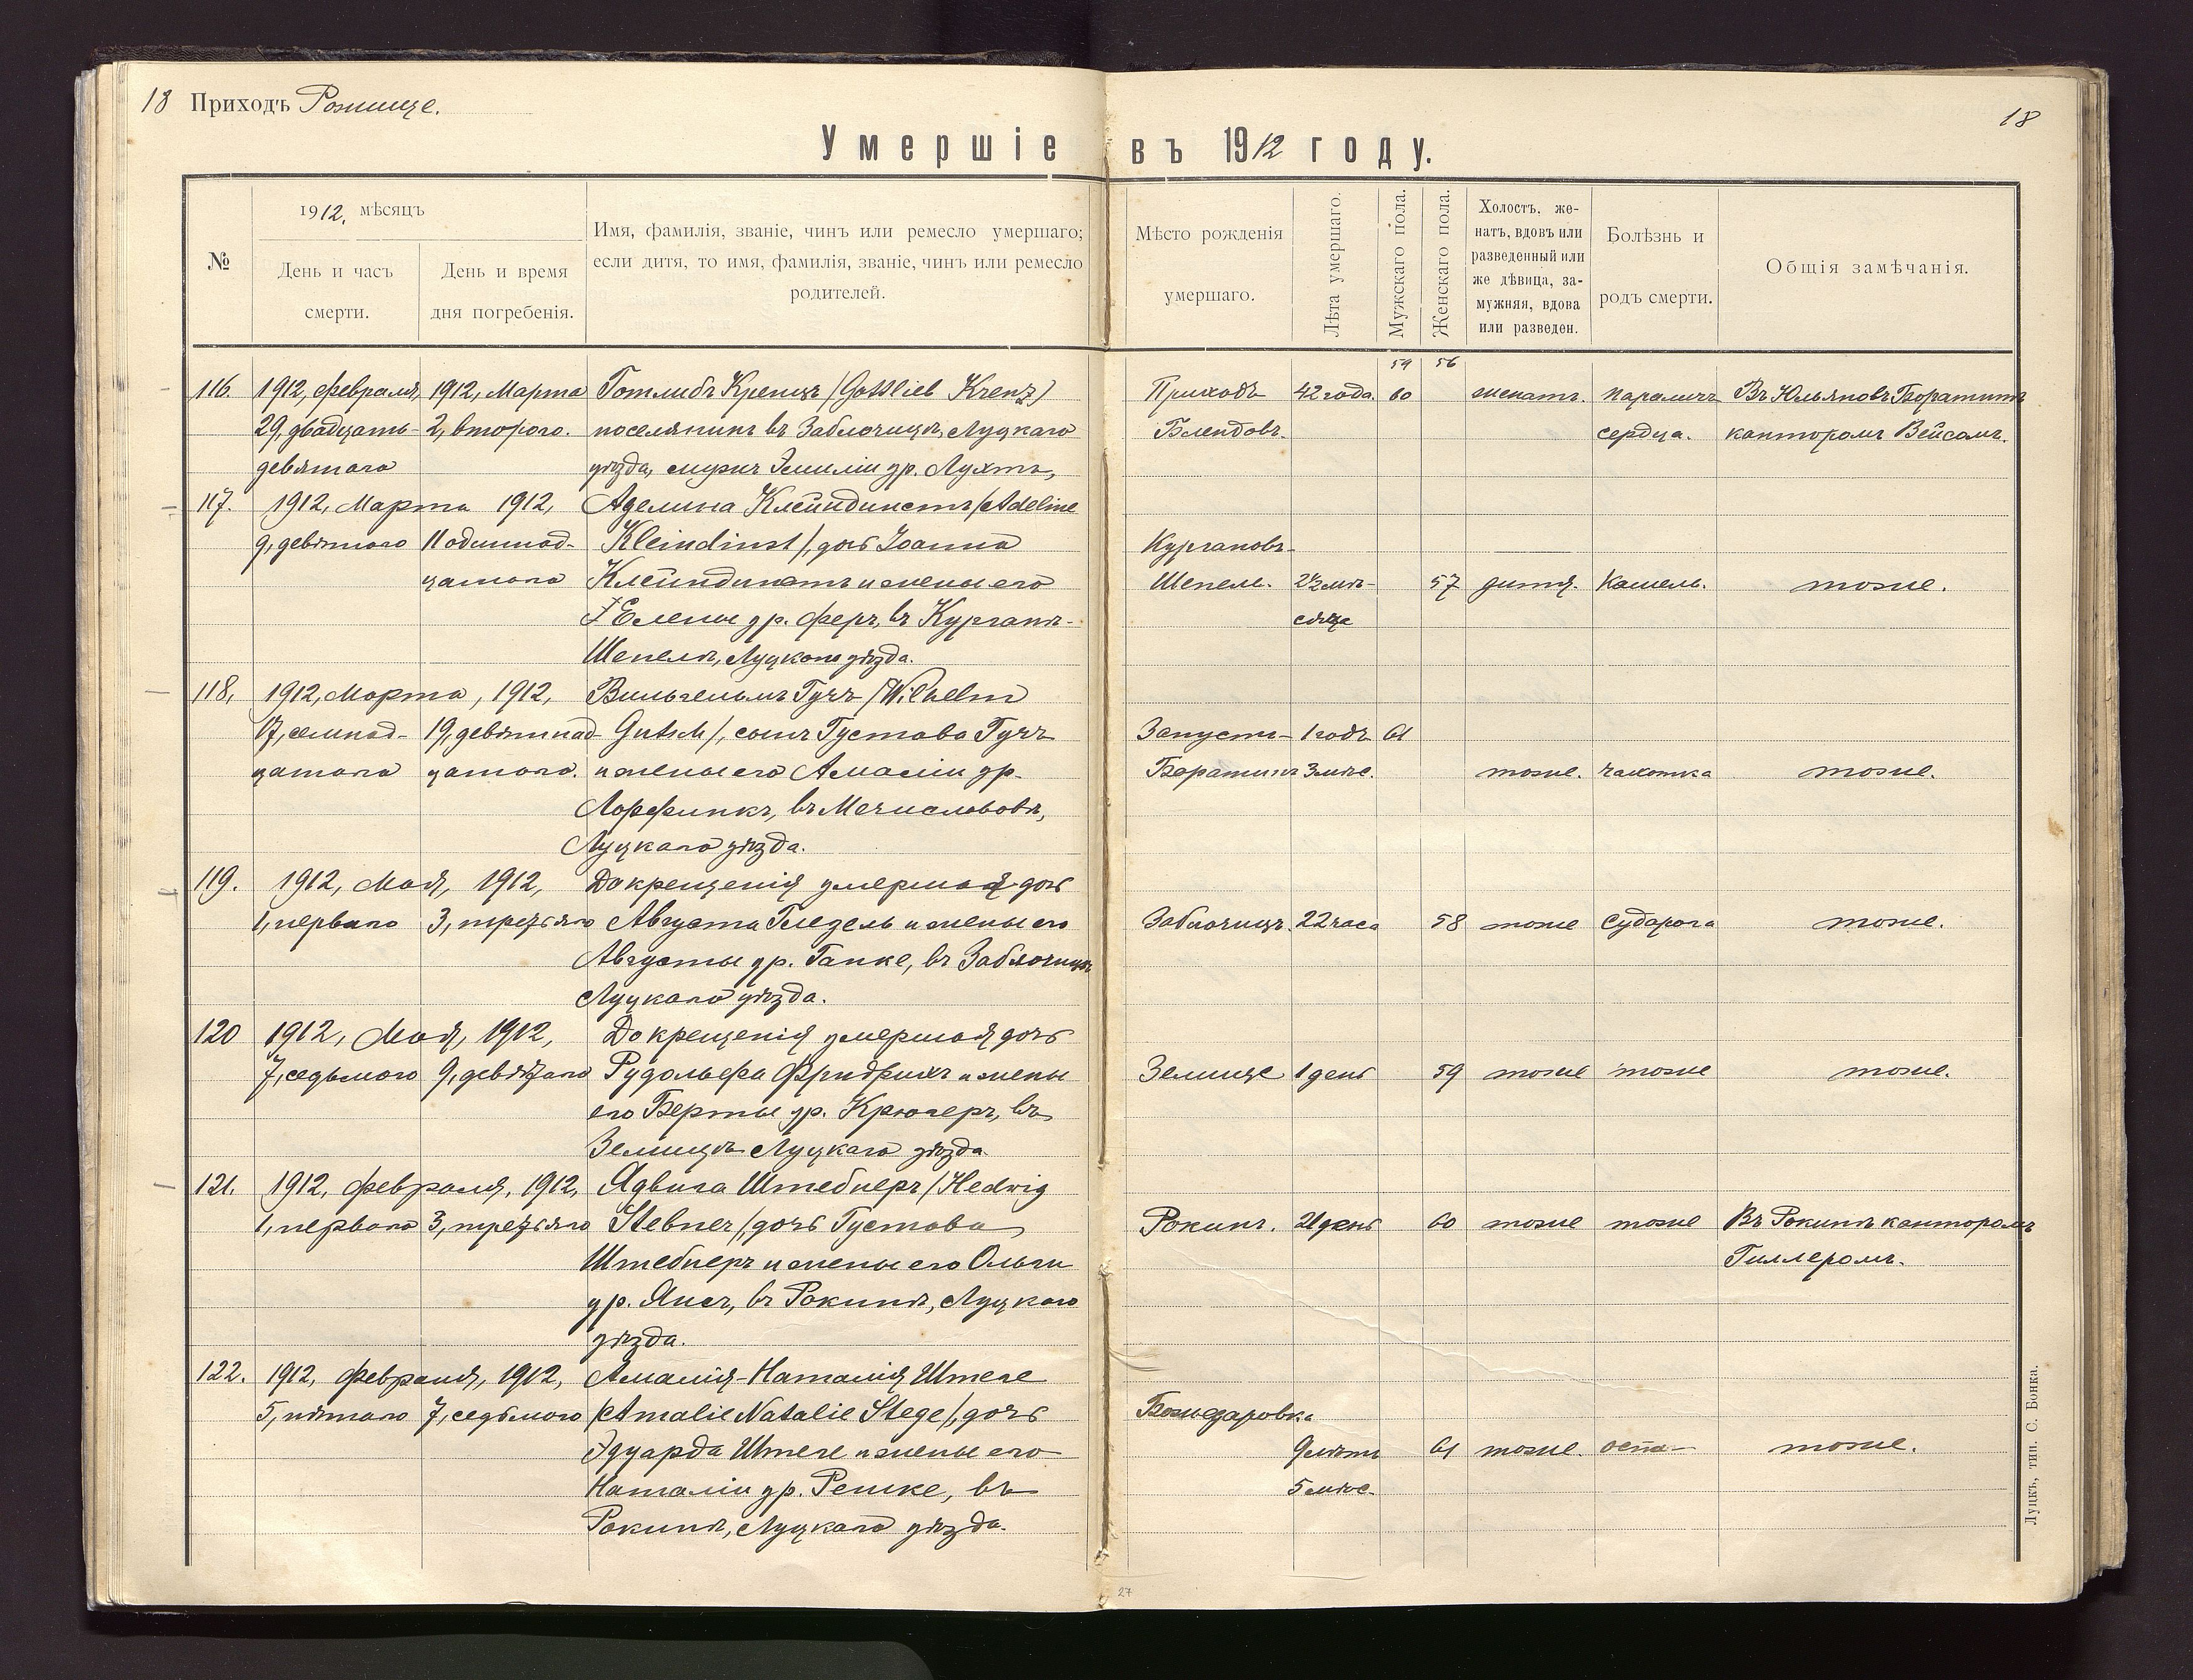 18 Приходъ Рожище.
18
Умершіе въ 1912 году.
№
1912, мѣсяцъ
День и часъ смерти.
День и время дня погребенія.
Имя, фамилія, званіе, чинъ или ремесло умершаго;
если дитя, то имя, фамилія, званіе, чинъ или ремесло
родителей.
Мѣсто рожденія
умершаго.
Лѣта умершаго.
Мужскаго пола.
Женскаго пола.
Холостъ, же-
натъ, вдовъ или
разведенный или
же дѣвица, за-
мужняя, вдова
или разведен.
Болѣзнь и
родъ смерти.
Общія замѣчанія.
59 56
116. 1912, февраля, 1912, Марта Готлибъ Кренцъ /Gottlieb Krenz/ Приходъ 42 года. 60 женатъ. параличъ Въ Юльяновъ Боратинѣ
29, двадцать- 2, второго. поселянинъ въ Заблочицѣ, Луцкаго Блендовъ. сердца. канторомъ Вейсомъ.
девятаго уѣзда, мужъ Эмиліи ур. Лухтъ,
117. 1912, Марта 1912, Аделина Клейндинстъ /Adeline
9, девятаго 11 одиннад- Kleindinst/, дочь Іоанна Кургановъ-
цатаго Клейндинстъ и жены его Шепель. 2½ мѣ- 57 дитя. Кашель. тоже.
† Елены ур. Феръ, въ Курганѣ- сяца
Шепелѣ, Луцкаго уѣзда.
118, 1912, Марта, 1912, Вильгельмъ Гучъ /Wilhelm
17, семнад- 19, девятнад- Gutsch/, сынъ Густава Гучъ Запусти- 1 годъ 61
цатаго цатаго. и жены его Амаліи ур. Боратинъ 3 мѣс. тоже. чахотка тоже.
Лоффинкъ, въ Мечиславовѣ,
Луцкаго уѣзда.
119. 1912, Мая, 1912, До крещенія умершая дочь
1, перваго 3, третьяго Августа Гледель и жены его Заблочицъ. 22 часа 58 тоже судорога тоже.
Августы ур. Гапке, въ Заблочицѣ
Луцкаго уѣзда.
120 1912, Мая, 1912, До крещенія умершая дочь
7, седьмого 9, девятаго Рудольфа Фридрихъ и жены Земище 1 день 59 тоже тоже тоже.
его Берты ур. Крюгеръ, въ
Земищѣ Луцкаго уѣзда.
121. 1912, февраля, 1912, Ядвига Штебнеръ /Hedwig
1, перваго 3, третьяго Stebner/, дочь Густава Рокинъ. 21 день 60 тоже тоже Въ Рокинѣ канторомъ
Штебнеръ и жены его Ольги Гиллеромъ.
ур. Янсъ, въ Рокинѣ, Луцкаго
уѣзда.
122. 1912, февраля, 1912, Амалія-Наталія Штеге
5, пятаго 7, седьмого /Amalie Natalie Stege/, дочь Божедаровка
Эдуарда Штеге и жены его 9 лѣтъ 61 тоже. оспа тоже.
Наталіи ур. Решке, въ 5 мѣс.
Рокинѣ, Луцкаго уѣзда.
Луцкъ, тип. С. Бонка.
27